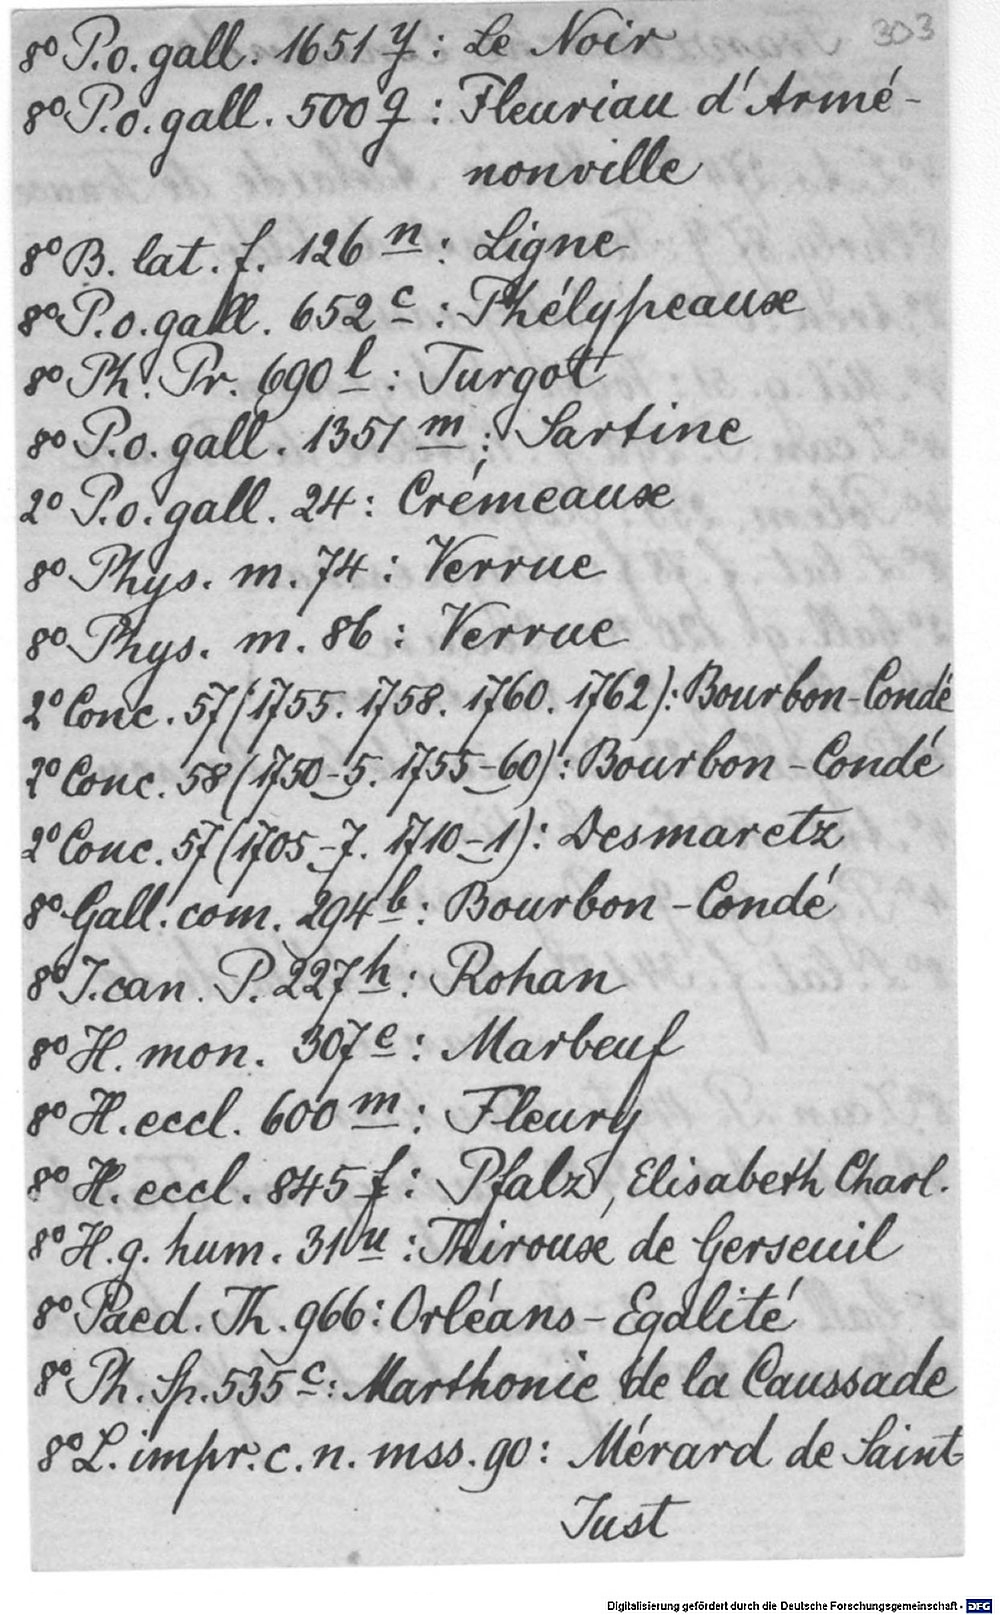 303
8° P.o. gall. 1651 y : Le Noir
8° P.o. gall. 500 q : Fleuriau d'Armé-
nonville
8° B. lat. f. 126 n : Ligne
8° P.o. gall. 652 c : Phélypeaux
8° Ph. Pr. 690 l : Turgot
8° P.o. gall. 1351 m : Sartine
2° P.o. gall. 24 : Crémeaux
8° Phys. m. 74 : Verrue
8° Phys. m. 86 : Verrue
2° Conc. 57 (1755. 1758. 1760. 1762): Bourbon-Condé
2° Conc. 58 (1750-5. 1755-60): Bourbon-Condé
2° Conc. 57 (1705-7. 1710-1): Desmaretz
8° Gall. com. 294 b : Bourbon-Condé
8° J. can. P. 227 h : Rohan
8° H. mon. 307 e : Marbeuf
8° H. eccl. 600 m : Fleury
8° H. eccl. 845 f : Pfalz, Elisabeth Charl.
8° H. g. hum. 31 u : Thiroux de Gerseuil
8° Paed. Th. 966: Orléans-Egalité
8° Ph. Sp. 535 c : Marthonie de la Caussade
8° L. impr. c. n. mss. 90 : Mérard de Saint
Just
Digitalisierung gefördert durch die Deutsche Forschungsgemeinschaft - DFG